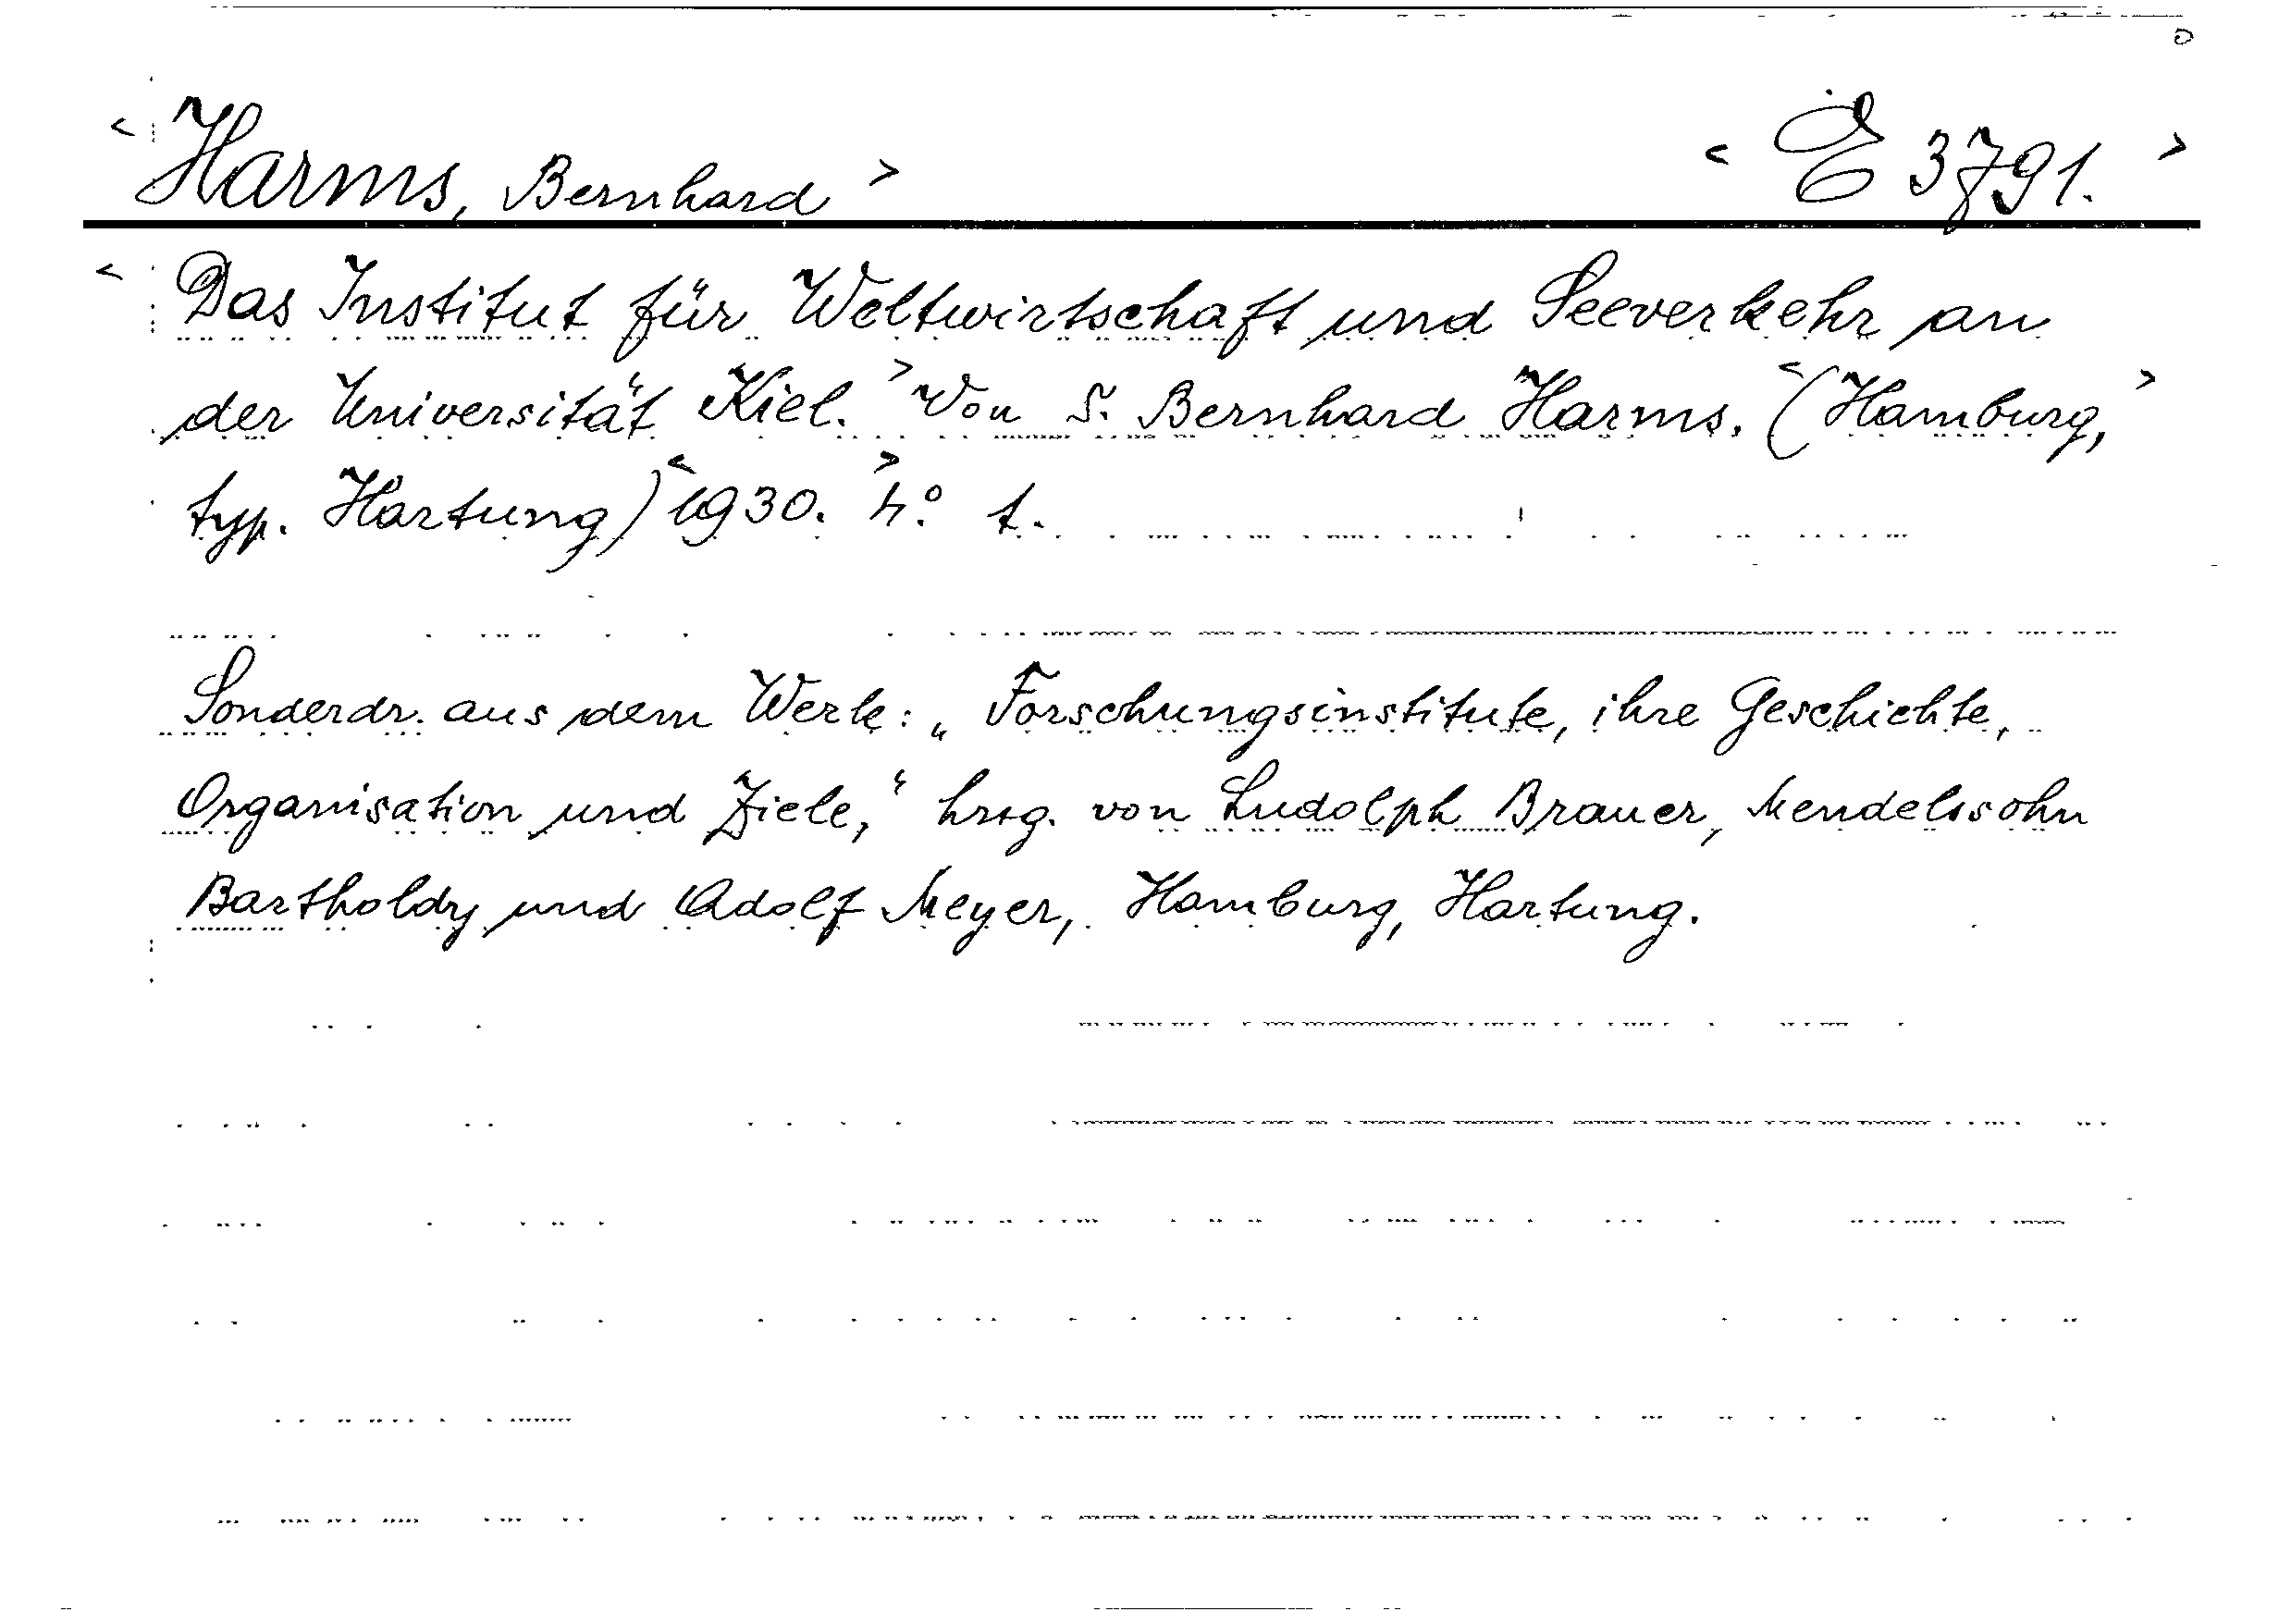 < Harms, Bernhard > < E 3791. >
< Das Institut für Weltwirtschaft und Seeverkehr an
der Universität Kiel. > Von S. Bernhard Harms. < (Hamburg, >
typ. Hartung) < 1930. > 4° t.
Sonderdr. aus dem Werke: „Forschungsinstitute, ihre Geschichte,
Organisation und Ziele,“ hrsg. von Ludolph Brauer, Mendelssohn
Bartholdy und Adolf Meyer, Hamburg, Hartung.